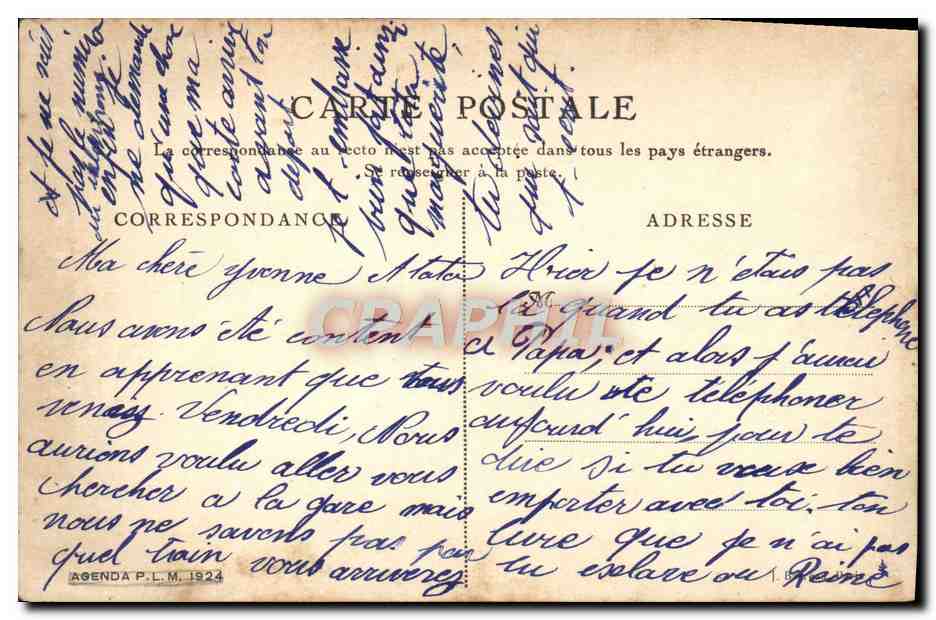 CARTE POSTALE
La correspondance au recto n'est pas acceptée dans tous les pays étrangers.
Se renseigner à la poste.
CORRESPONDANCE
ADRESSE
Ma chère Yvonne
Nous avons été content
en apprenant que vous
venez Vendredi, Nous
aurions voulu aller vous
chercher a la gare mais
nous ne savons pas par
quel train vous arriverez
Hier je n'étais pas
là quand tu as téléphoné
a Papa; et alors j'aurai
voulu te téléphoner
aujourd'hui, pour te
dire si tu veux bien
emporter avec toi ton
livre que je n'ai pas
lu esclave ou Reine
et je ne sais
pas le numero
je
ne demande
qu'une chose
que ma
carte arrive
avant ton
depart
je t'embrasse
bien
que ta
marguerite
CRAPHIL
M
AGENDA P.L.M. 1924